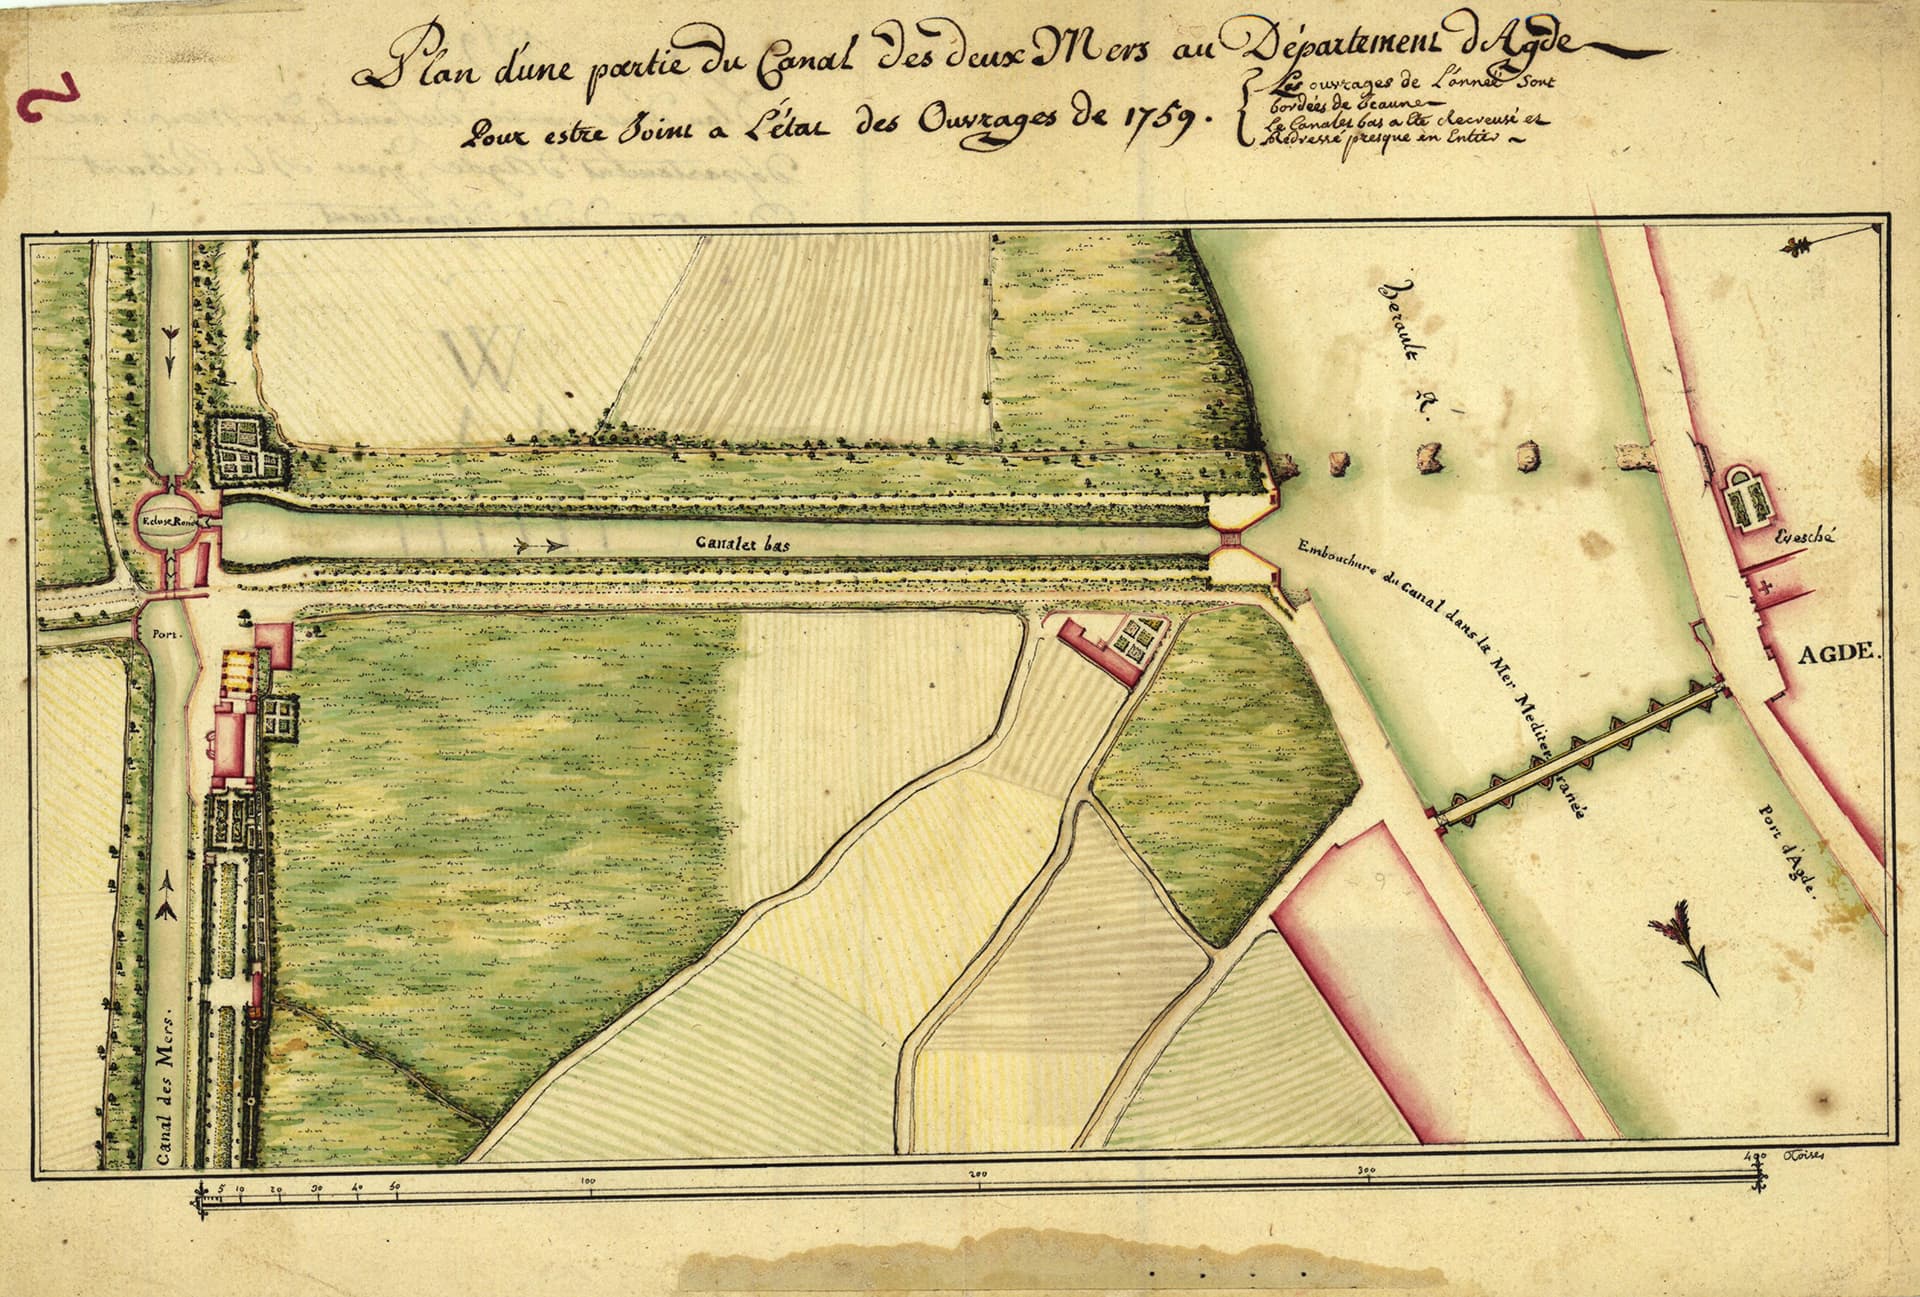 Plan d'une partie du Canal des deux Mers au Département d'Agde
Pour estre Joint a L'état des Ouvrages de 1759.
Les ouvrages de L'année Sont
bordées de Jeaune
Le Canalet bas a été Recreusé et
Redressé presque en Entier
herault R.
Ecluse Ronde
Canalet bas
Embouchure du Canal dans la Mer Mediterranée
Evesché
Port.
AGDE.
Port d'Agde.
Canal des Mers.
5 10 20 30 40 50 100 200 300 400 Toises